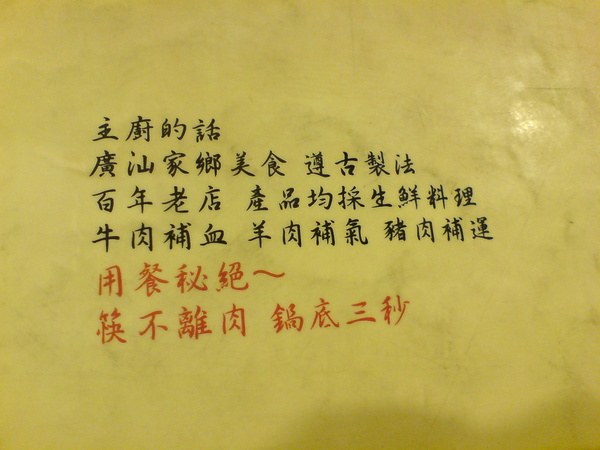 主廚的話
廣汕家鄉美食 遵古製法
百年老店 產品均採生鮮料理
牛肉補血 羊肉補氣 豬肉補運
用餐秘絕～
筷不離肉 鍋底三秒